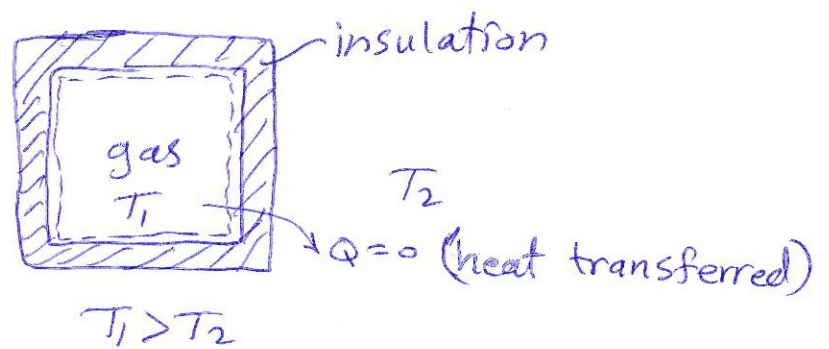 insulation
gas
T₁
T₂
Q=0 (heat transferred)
T₁>T₂